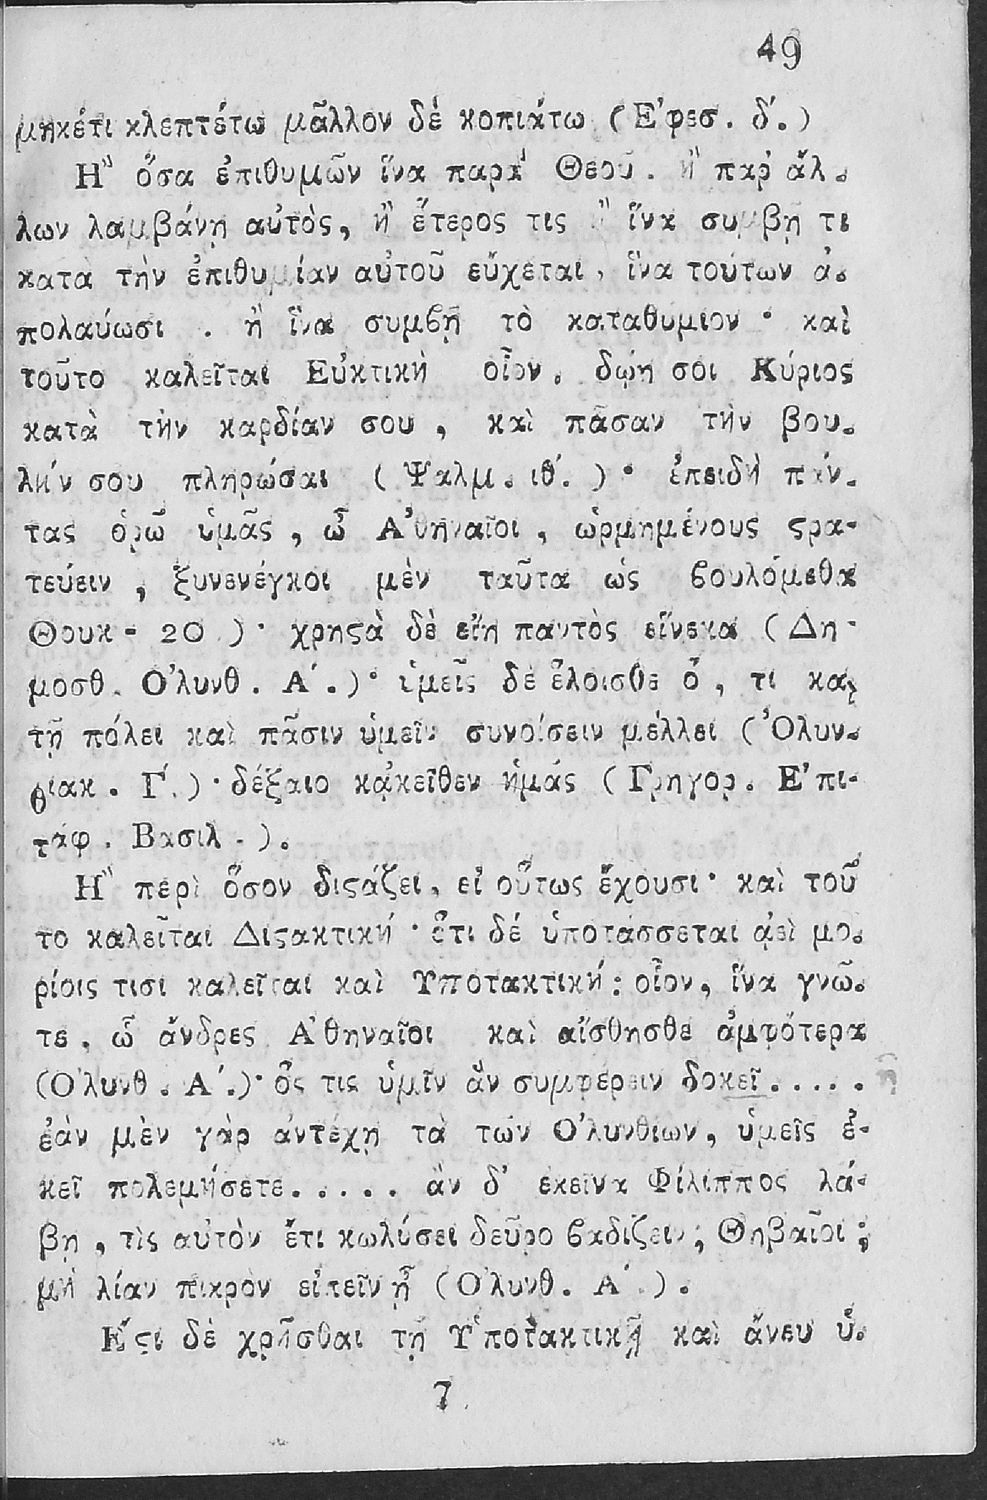 49
μηκέτι κλεπτέτω μᾶλλον δέ κοπιάτω (Ε᾿φεσ. δ΄.)
Η῍ ὅσα ἐπιθυμῶν ἵνα παρὰ Θεοῦ. ἢ παρ' ἄλ-
λων λαμβάνῃ αὐτὸς, ἢ ἕτερος τις ἢ ἵνα συμβῇ τι
κατὰ τὴν ἐπιθυμίαν αὐτοῦ εὔχεται, ἵνα τούτων ἀ-
πολαύωσι . ἢ ἵνα συμϐῇ τὸ καταθυμιον · καὶ
τοῦτο καλεῖται Εὐκτικὴ οἷον. δῴη σοι Κύριος
κατὰ τὴν καρδίαν σου , καὶ πᾶσαν τὴν βου-
λήν σου πληρώσαι ( Ψαλμ. ιθ΄. ) · ἐπειδὴ πάν-
τας ὁρῶ ὑμᾶς , ὦ Α᾿θηναῖοι , ὡρμημένους ϛρα-
τεύειν , ξυνενέγκοι μὲν ταῦτα ὡς ϐουλόμεθα
Θουκ - 20 ) · χρηϛὰ δὲ εἴη παντὸς εἵνεκα ( Δη-
μοσθ. Ο᾿λυνθ . Α΄.) · ὑμεῖς δὲ ἕλοισθε ὅ, τι καὶ
τῇ πόλει καὶ πᾶσιν ὑμεῖν συνοίσειν μέλλει (Ὀλυν-
θιακ . Γ΄.) · δέξαιο κᾀκεῖθεν ἡμάς ( Γρηγορ. Ε᾿πι-
τάφ . Βασιλ . ).
Η῍ περὶ ὅσον διϛάζει, εἰ οὕτως ἔχουσι · καὶ τοῦ
το καλεῖται Διϛακτική · ἔτι δέ ὑποτάσσεται ᾀεὶ μο-
ρίοις τισι καλεῖται καὶ Υποτακτική : οἷον, ἵνα γνῶ-
τε , ὦ ἄνδρες Α᾿θηναῖοι καὶ αἴσθησθε ἀμφότερα
(Ο᾿λυνθ . Α΄.) · ὅς τις ὑμῖν ἂν συμφέρειν δοκεῖ.....
ἐὰν μὲν γὰρ ἀντέχῃ τὰ τῶν Ο᾿λυνθίων, ὑμεῖς ἐ-
κεῖ πολεμήσετε..... ἂν δ' ἐκεῖνα Φίλιππος λά-
βῃ , τὶς αὐτὸν ἔτι κωλύσει δεῦρο ϐαδίζειν ; Θηβαῖοι ;
μὴ λίαν πικρὸν εἰπεῖν ᾖ (Ο᾿λυνθ. Α΄ .) .
Ε῎ϛι δὲ χρῆσθαι τῇ Υ῾ποτακτικῇ καὶ ἄνευ ὑ-
7